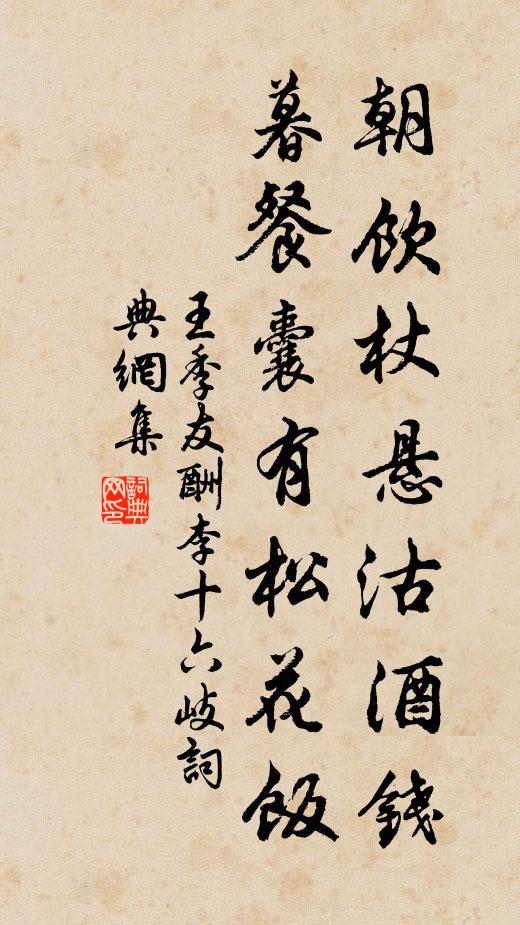 朝饮杖悬沽酒錢
暮餐囊有松花飯
王季友酬李十六岐詞
典網集
詞典网印